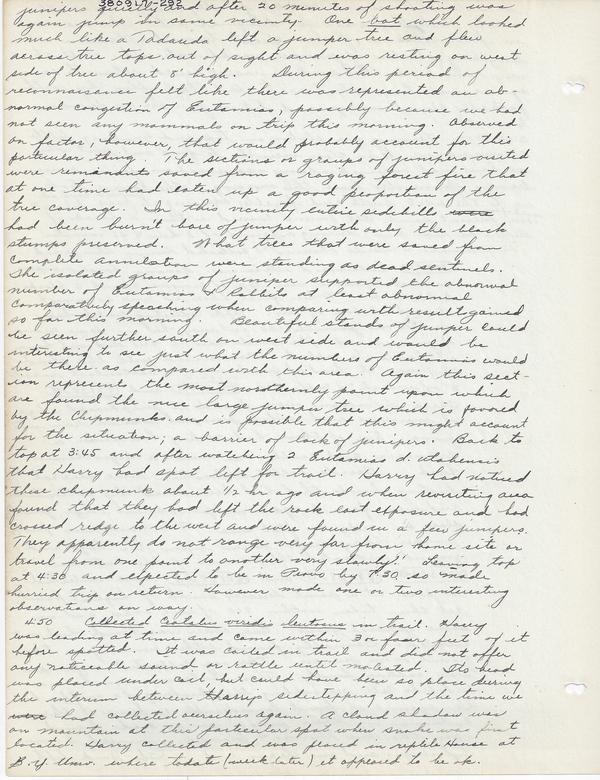 380917-292
junipers and after 20 minutes of shooting was
again jump in same vicinity. One bat which looked
much like a Tadarida left a juniper tree and flew
across tree tops out of sight and was resting on west
side of tree about 8' high. During this period of
reconnaisance felt like there was represented an ab-
normal congestion of Eutamias, possibly because we had
not seen any mammals on trip this morning. Observed
on factor, however, that would probably account for this
particular thing. The sections or groups of junipers visited
were remanants saved from a raging forest fire that
at one time had eaten up a good peoportion of the
tree coverage. In this vicinity entire sidehills were
had been burn't bare of juniper with only the black
stumps preserved. What trees that were saved from
complete annilation were standing as dead sentinels.
The isolated groups of juniper supported the abnormal
number of Eutamias & Rabbits at least abnormal
comparatively speaking when comparing with result gained
so far this morning. Beautiful stands of juniper could
be seen further south on west side and would be
interesting to see just what the numbers of Eutamias would
be there as compared with this area. Again this sect-
ion represent the most northernly point upon which
are found the nice large juniper tree which is favored
by the Chipmunks and is possible that this might account
for the situation; a barrier of lack of junipers. Back to
top at 3:45 and after watching 2 Eutamias d. utahensis
that Harry had spot left for trail. Harry had noticed
these chipmunk about 1/2 hr ago and when revisiting area
found that they had left the rock east exposure and had
crossed ridge to the west and were found in a few junipers.
They apparently do not range very far from home site or
travel from one point to another very slowly! Leaving top
at 4:30 and expected to be in Provo by 7:30 so made
hurried trip on return. However made one or two interesting
observations on way.
4:50 Collected Crotalus viridis lutosus in trail. Harry
was leading at time and came within 3 or four feet of it
before spotted. It was coiled in trail and did not offer
any noticeable sound or rattle until molested. Its head
was placed under coil but could have been so place during
the interum between Harry's sidestepping and the time we
were had collected ourselves again. A cloud shadow was
on mountain at this particular spot when snake was first
located. Harry collected and was placed in reptile House at
B.Y. Univ. where todate (week later) it appeared to be ok.